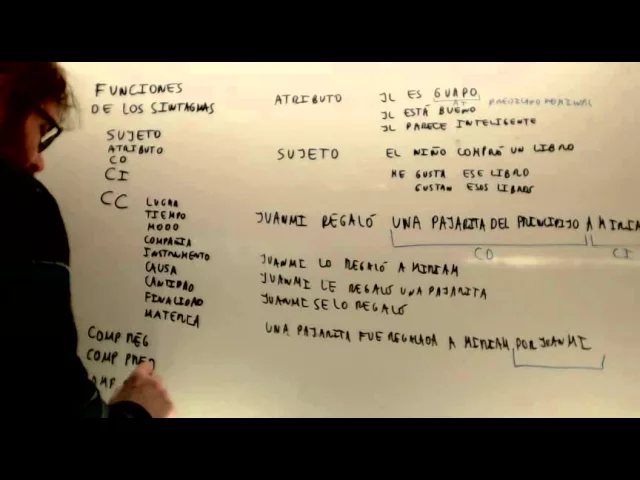 FUNCIONES
DE LOS SINTAGMAS
SUJETO
ATRIBUTO
CD
CI
CC
LUGAR
TIEMPO
MODO
COMPAÑIA
INSTRUMENTO
CAUSA
CANTIDAD
FINALIDAD
MATERIA
COMP REG
COMP PRED
ATRIBUTO
JL ES GUAPO
AT
PREDICADO NOMINAL
JL ESTÁ BUENO
JL PARECE INTELIGENTE
SUJETO
EL NIÑO COMPRÓ UN LIBRO
ME GUSTA ESE LIBRO
GUSTAN ESOS LIBROS
JUANMI REGALÓ UNA PAJARITA DEL PRINCIPIJO A MIRIA
CD
CI
JUANMI LO REGALÓ A MIRIAM
JUANMI LE REGALÓ UNA PAJARITA
JUANMI SE LO REGALÓ
UNA PAJARITA FUE REGALADA A MIRIAM POR JUANMI